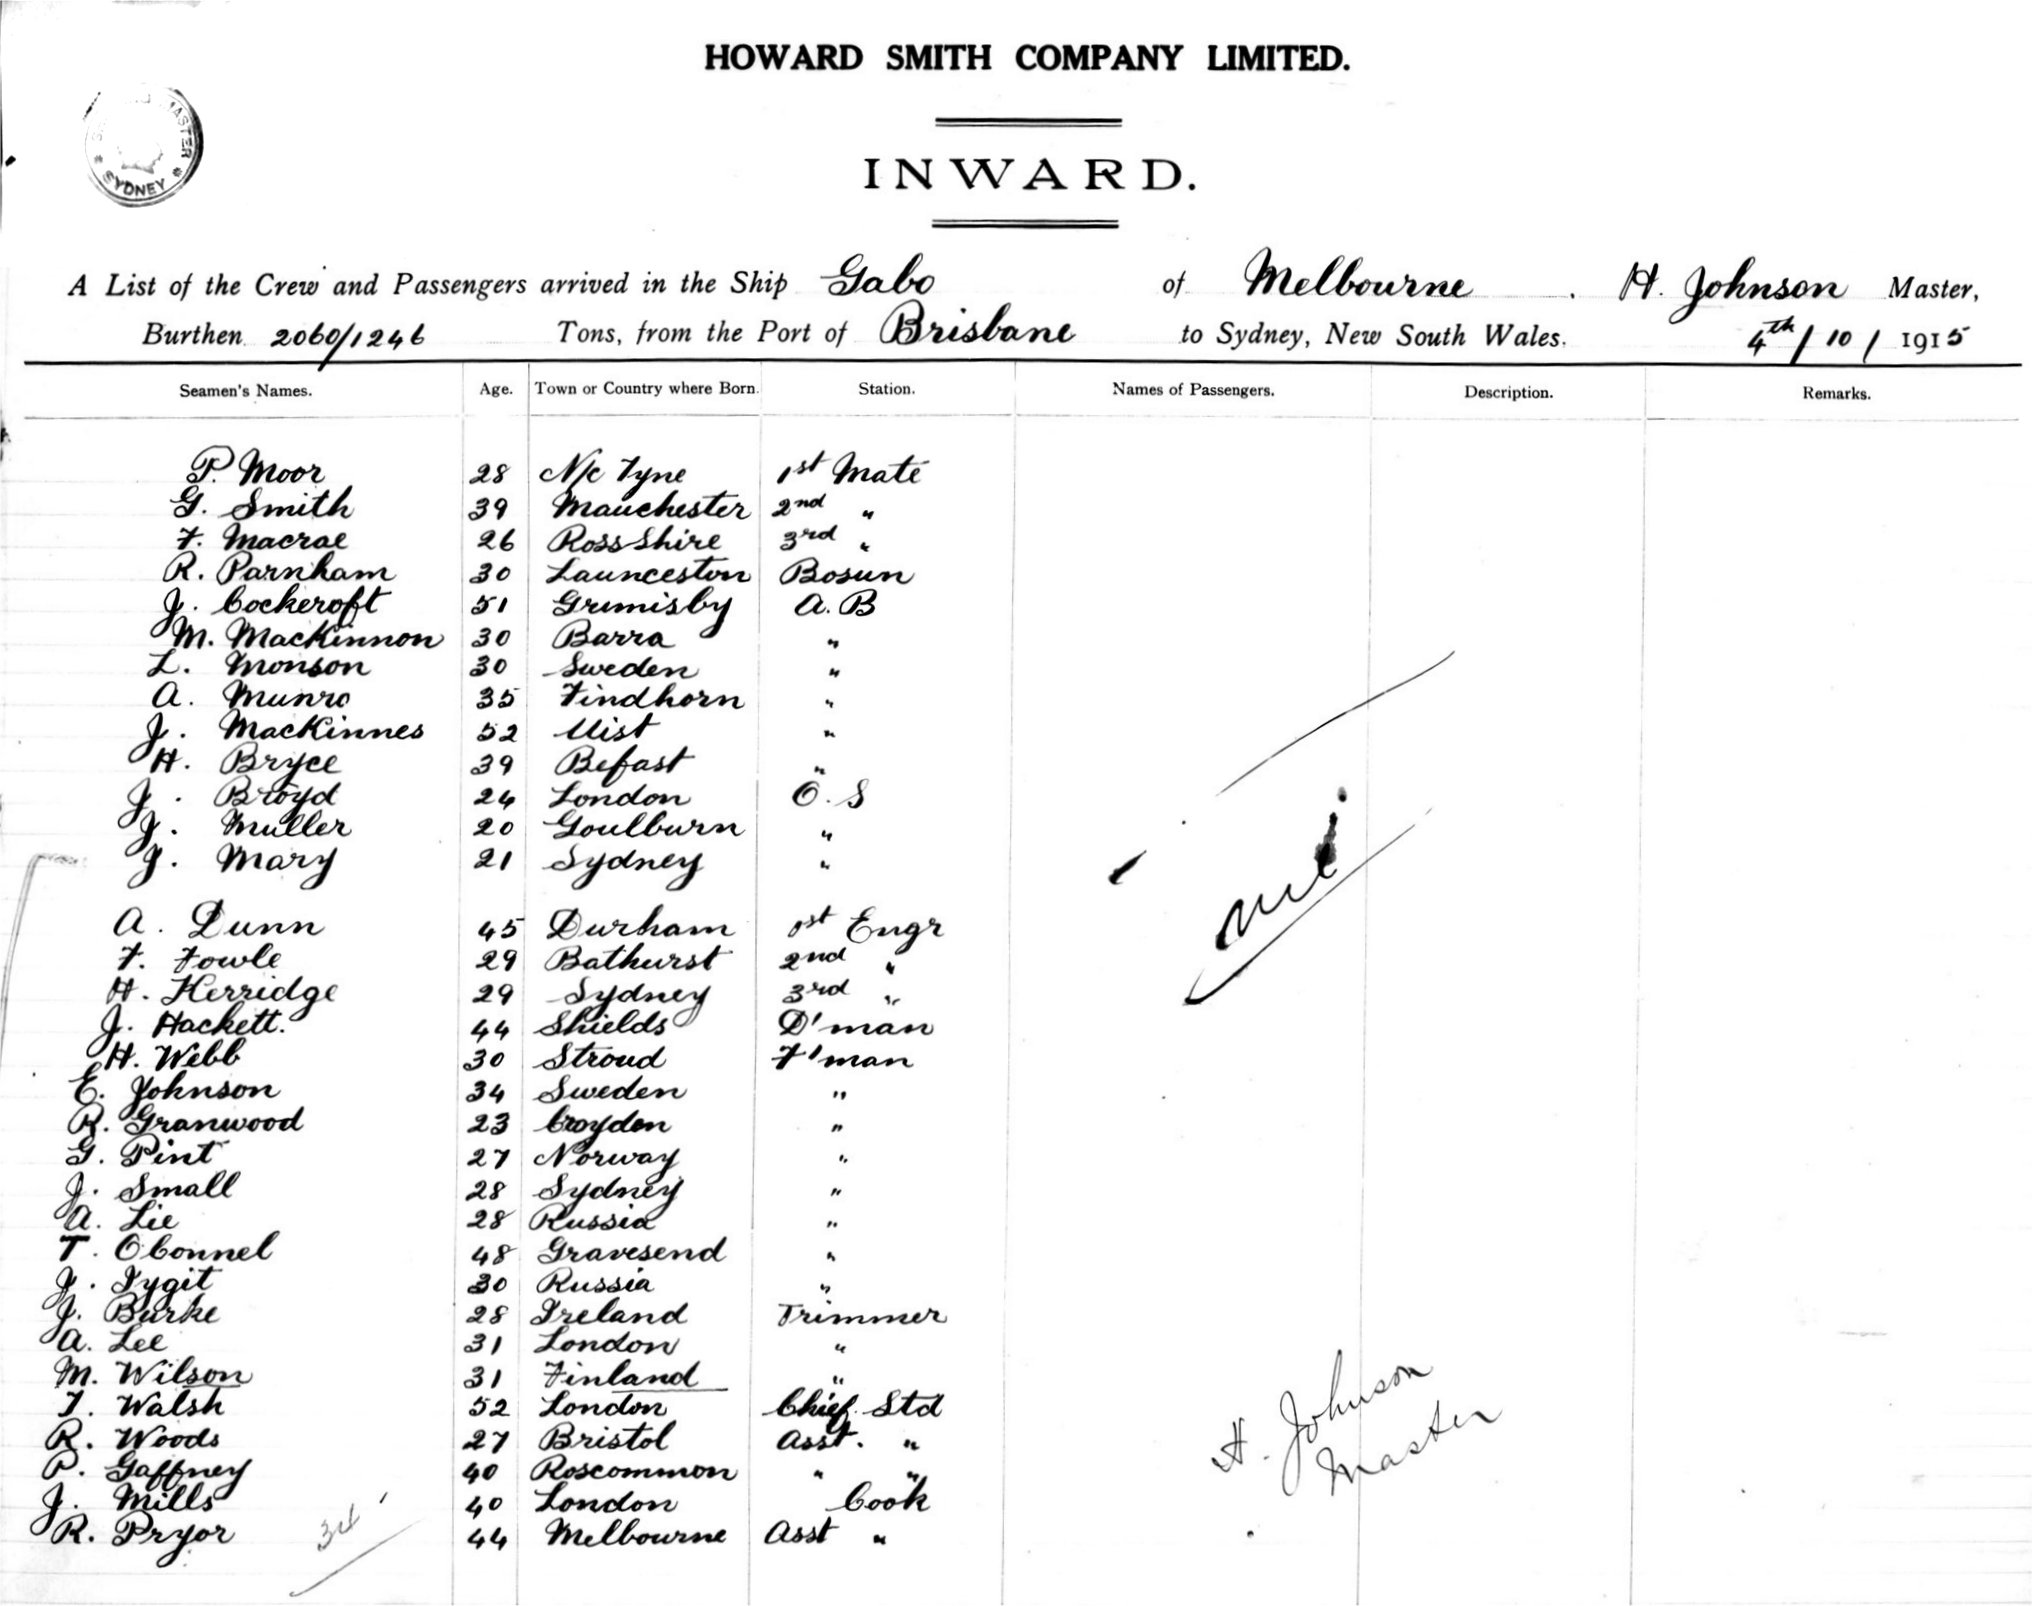 HOWARD SMITH COMPANY LIMITED.
MASTER
* SYDNEY *
INWARD.
A List of the Crew and Passengers arrived in the Ship Gabo of Melbourne . H. Johnson Master,
Burthen 2060/1246 Tons, from the Port of Brisbane to Sydney, New South Wales. 4th/10/1915
Seamen's Names. Age. Town or Country where Born. Station. Names of Passengers. Description. Remarks.
P. Moor 28 N/c Tyne 1st Mate
G. Smith 39 Manchester 2nd "
F. Macrae 26 Ross Shire 3rd "
R. Parnham 30 Launceston Bosun
J. Cockeroft 51 Grimisby A.B
M. MacKinnon 30 Barra "
L. Monson 30 Sweden "
A. Munro 35 Findhorn "
J. MacKinnes 52 Uist "
H. Bryce 39 Befast "
J. Broyd 24 London O.S
J. Muller 20 Goulburn "
J. Mary 21 Sydney "
nil
A. Dunn 45 Durham 1st Engr
F. Fowle 29 Bathurst 2nd "
H. Kerridge 29 Sydney 3rd "
J. Hackett. 44 Shields D'man
H. Webb 30 Stroud F'man
E. Johnson 34 Sweden "
R. Granwood 23 Croyden "
G. Pint 27 Norway "
J. Small 28 Sydney "
A. Lie 28 Russia "
T. OConnel 48 Gravesend "
J. Tygit 30 Russia "
J. Burke 28 Ireland Trimmer
A. Lee 31 London "
M. Wilson 31 Finland "
T. Walsh 52 London Chief Std
R. Woods 27 Bristol Asst. "
P. Gaffney 40 Roscommon " "
J. Mills 40 London Cook
R. Pryor 44 Melbourne Asst "
34
H. Johnson
Master